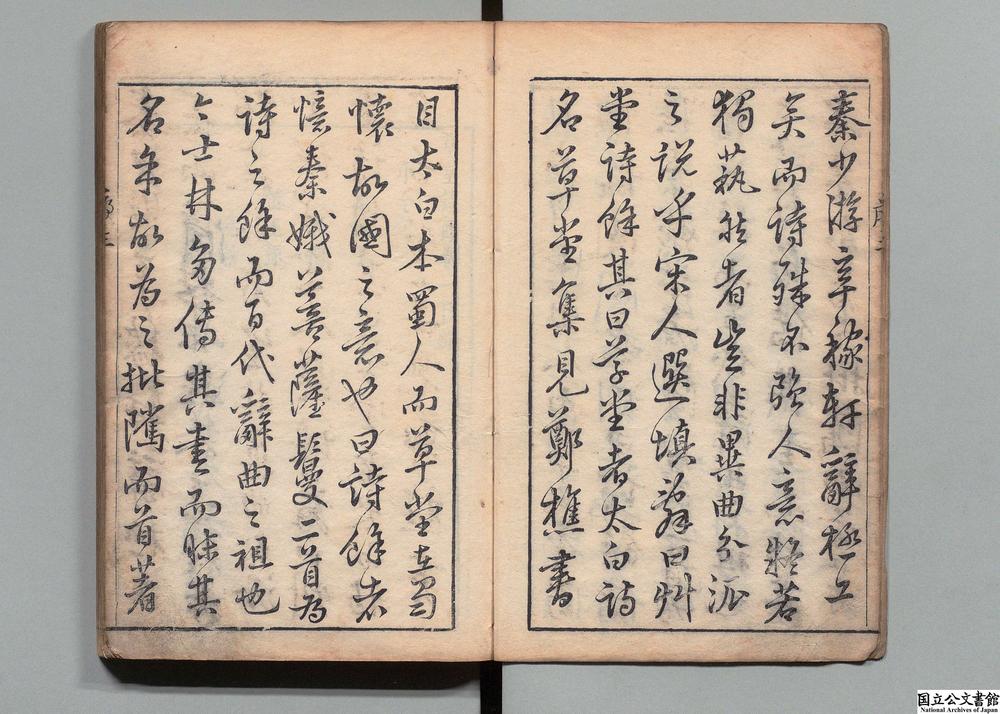 秦少游辛稼軒辭極工
矣而詩殊不強人意疑若
獨蓺然者豈非異曲分派
之說乎宋人選填辭曰艸
堂詩餘其曰草堂者太白詩
名草堂集見鄭樵書
目太白本蜀人而草堂在蜀
懷故國之意也曰詩餘者
憶秦娥菩薩鬘二首為
詩之餘而百代辭曲之祖也
今士林多傳其書而昧其
名余故為之批騭而首著
序三
国立公文書館
National Archives of Japan